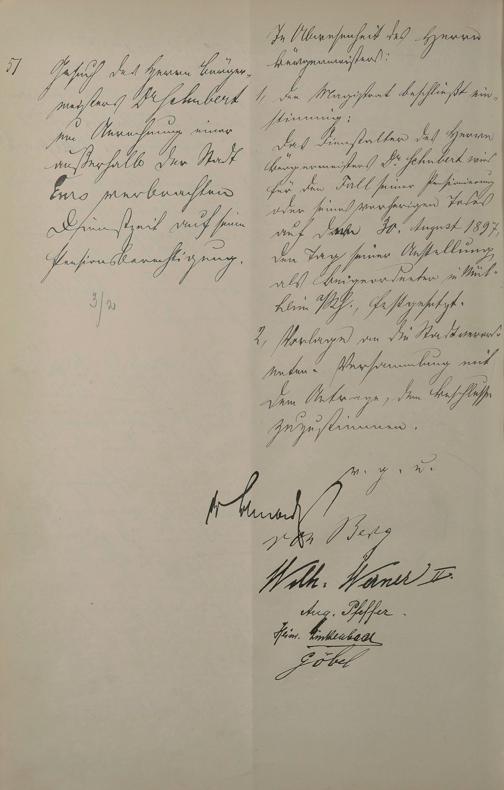 5/ Gesuch des Herrn Bürger-
meisters Dr Schubert
um Anrechnung einer
außerhalb der Stadt
Ems verbrachten
Dienstzeit auf seine
Pensionsberechtigung.
3/2
In Abwesenheit des Herrn
Bürgermeisters:
1, Der Magistrat beschließt ein-
stimmig:
Das Dienstalter des Herrn
Bürgermeisters Dr Schubert wird
für den Fall seiner Pensionierung
oder seines vorherigen Todes
auf den 30. August 1897,
den Tag seiner Anstellung
als Beigeordneter in Mül-
heim festgesetzt.
2, Vorlage an die Stadtverord-
neten-Versammlung mit
dem Antrage, dem Beschlusse
zuzustimmen.
v. g. u.
Berg
Wilh. Werner II.
Aug. Pfeffer.
Heinr. Linkenbach
Göbel